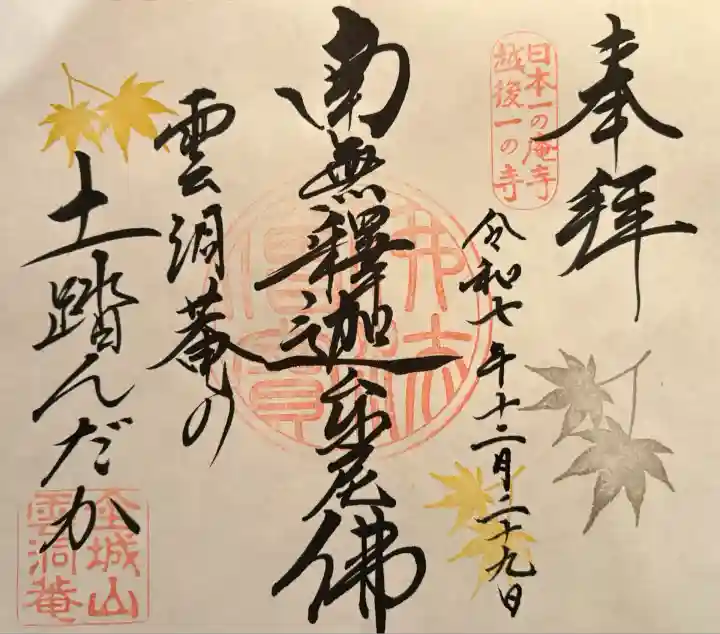 奉拜
日本一の庵寺
越後一の寺
令和七年十二月二十九日
南無釋迦牟尼佛
佛法僧寶
雲洞菴の
土踏んだか
金城山
雲洞菴